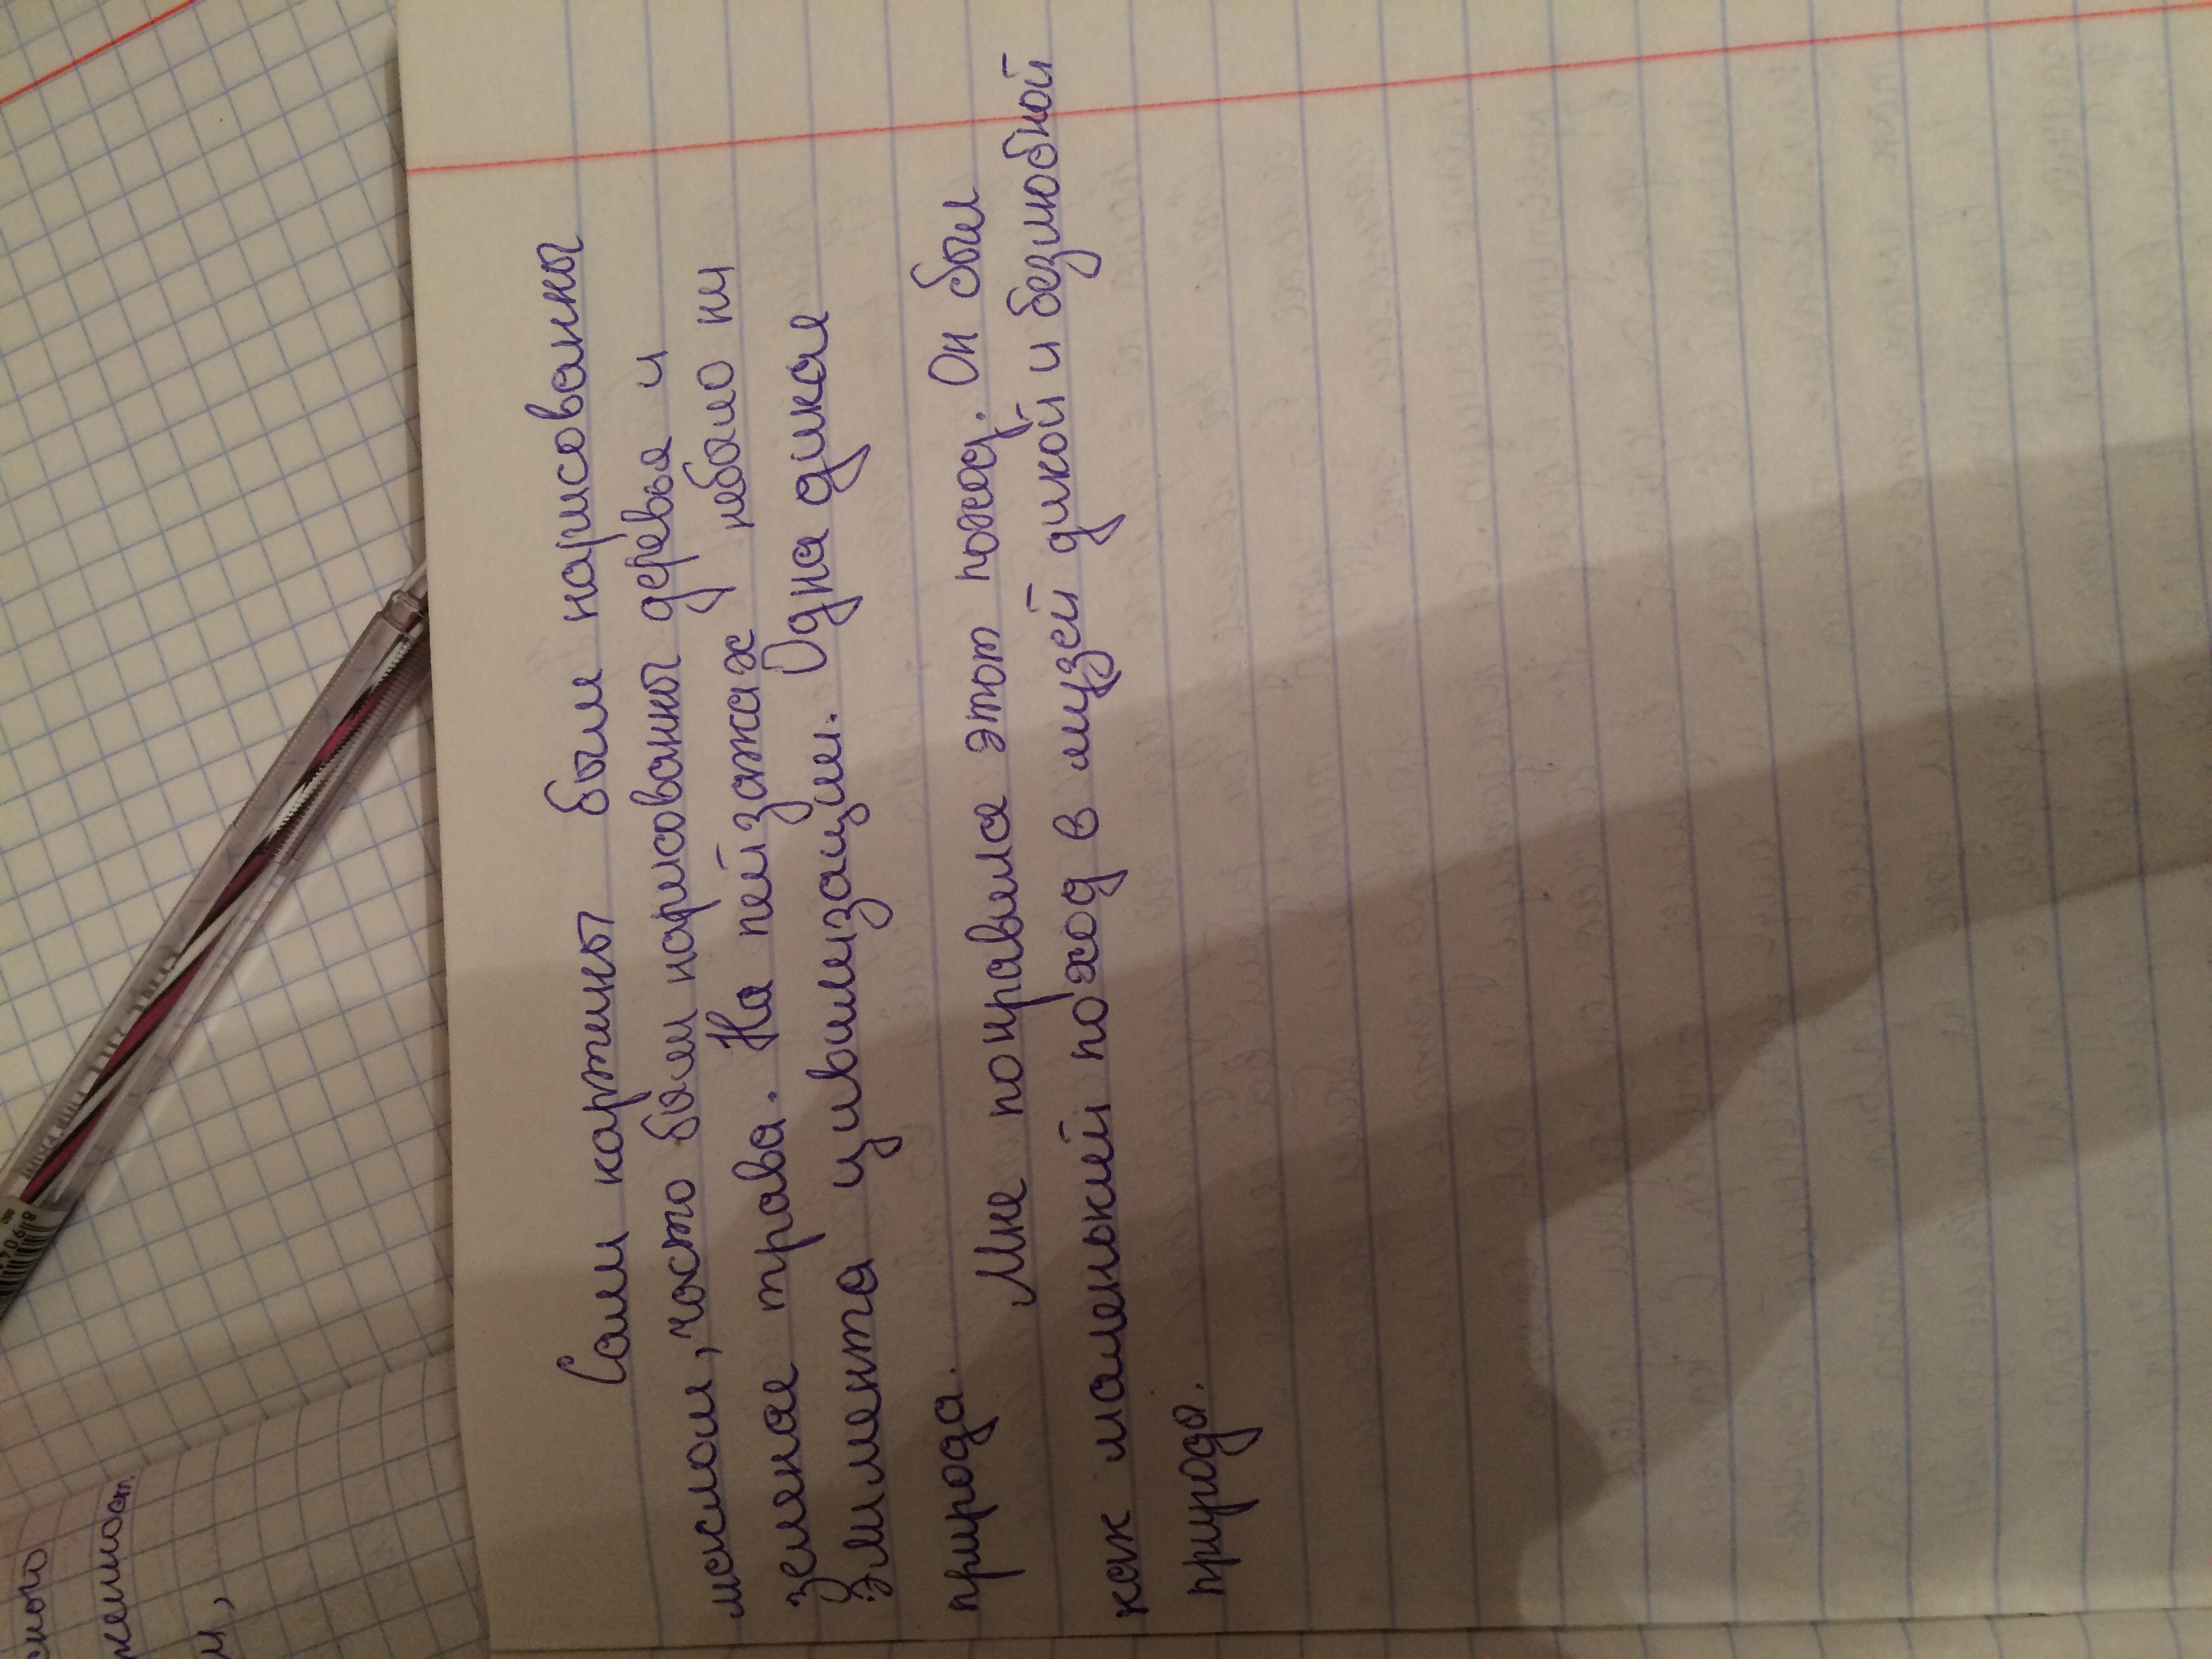 Сами картины были нарисованны
маслом, часто были нарисованны деревья и
зеленая трава. На пейзажах небыло ни
элемента цивилизации. Одна дикая
природа.
Мне понравился этот поход. Он был
как маленький поход в музей дикой и безлюбной
природы.